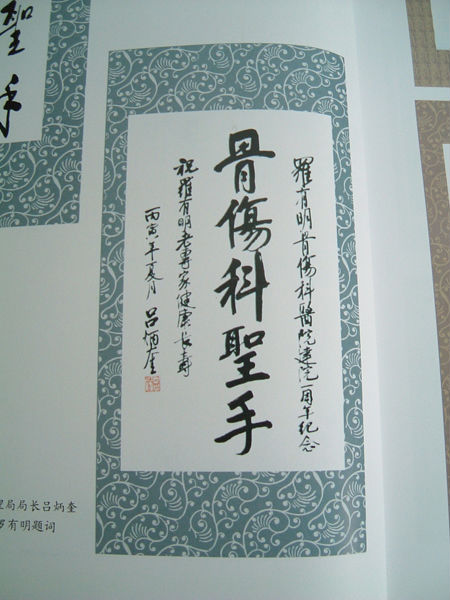 羅有明骨傷科醫院建院一周年紀念
骨傷科聖手
祝羅有明老專家健康長壽
丙寅年夏月 呂炳奎
聖手
理局局长吕炳奎
罗有明题词